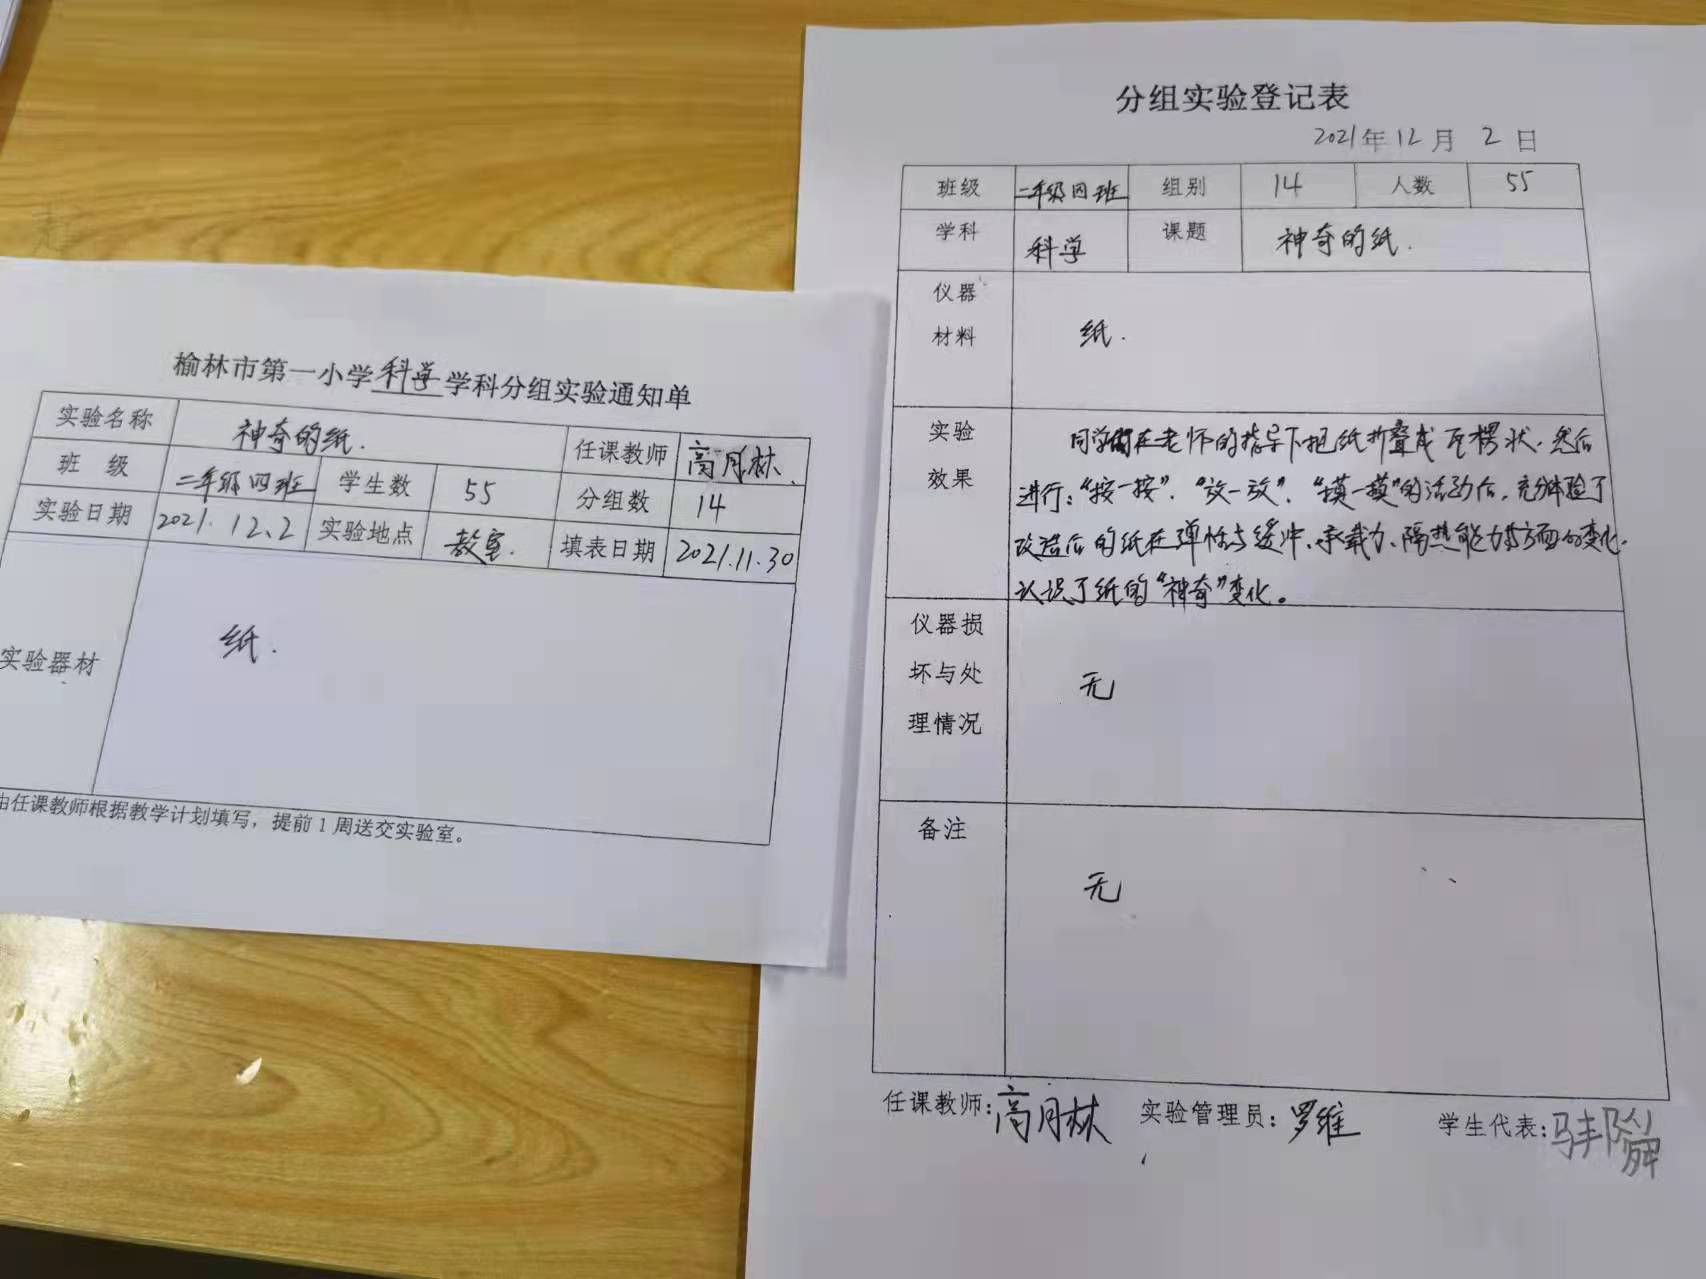 榆林市第一小学科学学科分组实验通知单
实验名称 神奇的纸. 任课教师 高月林
班 级 二年级四班 学生数 55 分组数 14
实验日期 2021.12.2 实验地点 教室. 填表日期 2021.11.30
实验器材 纸.
由任课教师根据教学计划填写，提前1周送交实验室。
分组实验登记表
2021年12月2日
班级 二年级四班 组别 14 人数 55
学科 科学 课题 神奇的纸.
仪器
材料
纸.
实验
效果
同学们在老师的指导下把纸折叠成瓦楞状.然后
进行:“按一按”、“放一放”、“摸一摸”的活动后,充分体验了
改造后的纸在弹性与缓冲、承载力、隔热能力等方面的变化.
认识了纸的“神奇”变化。
仪器损
坏与处
理情况
无
备注
无
任课教师:高月林 实验管理员:罗维 学生代表: